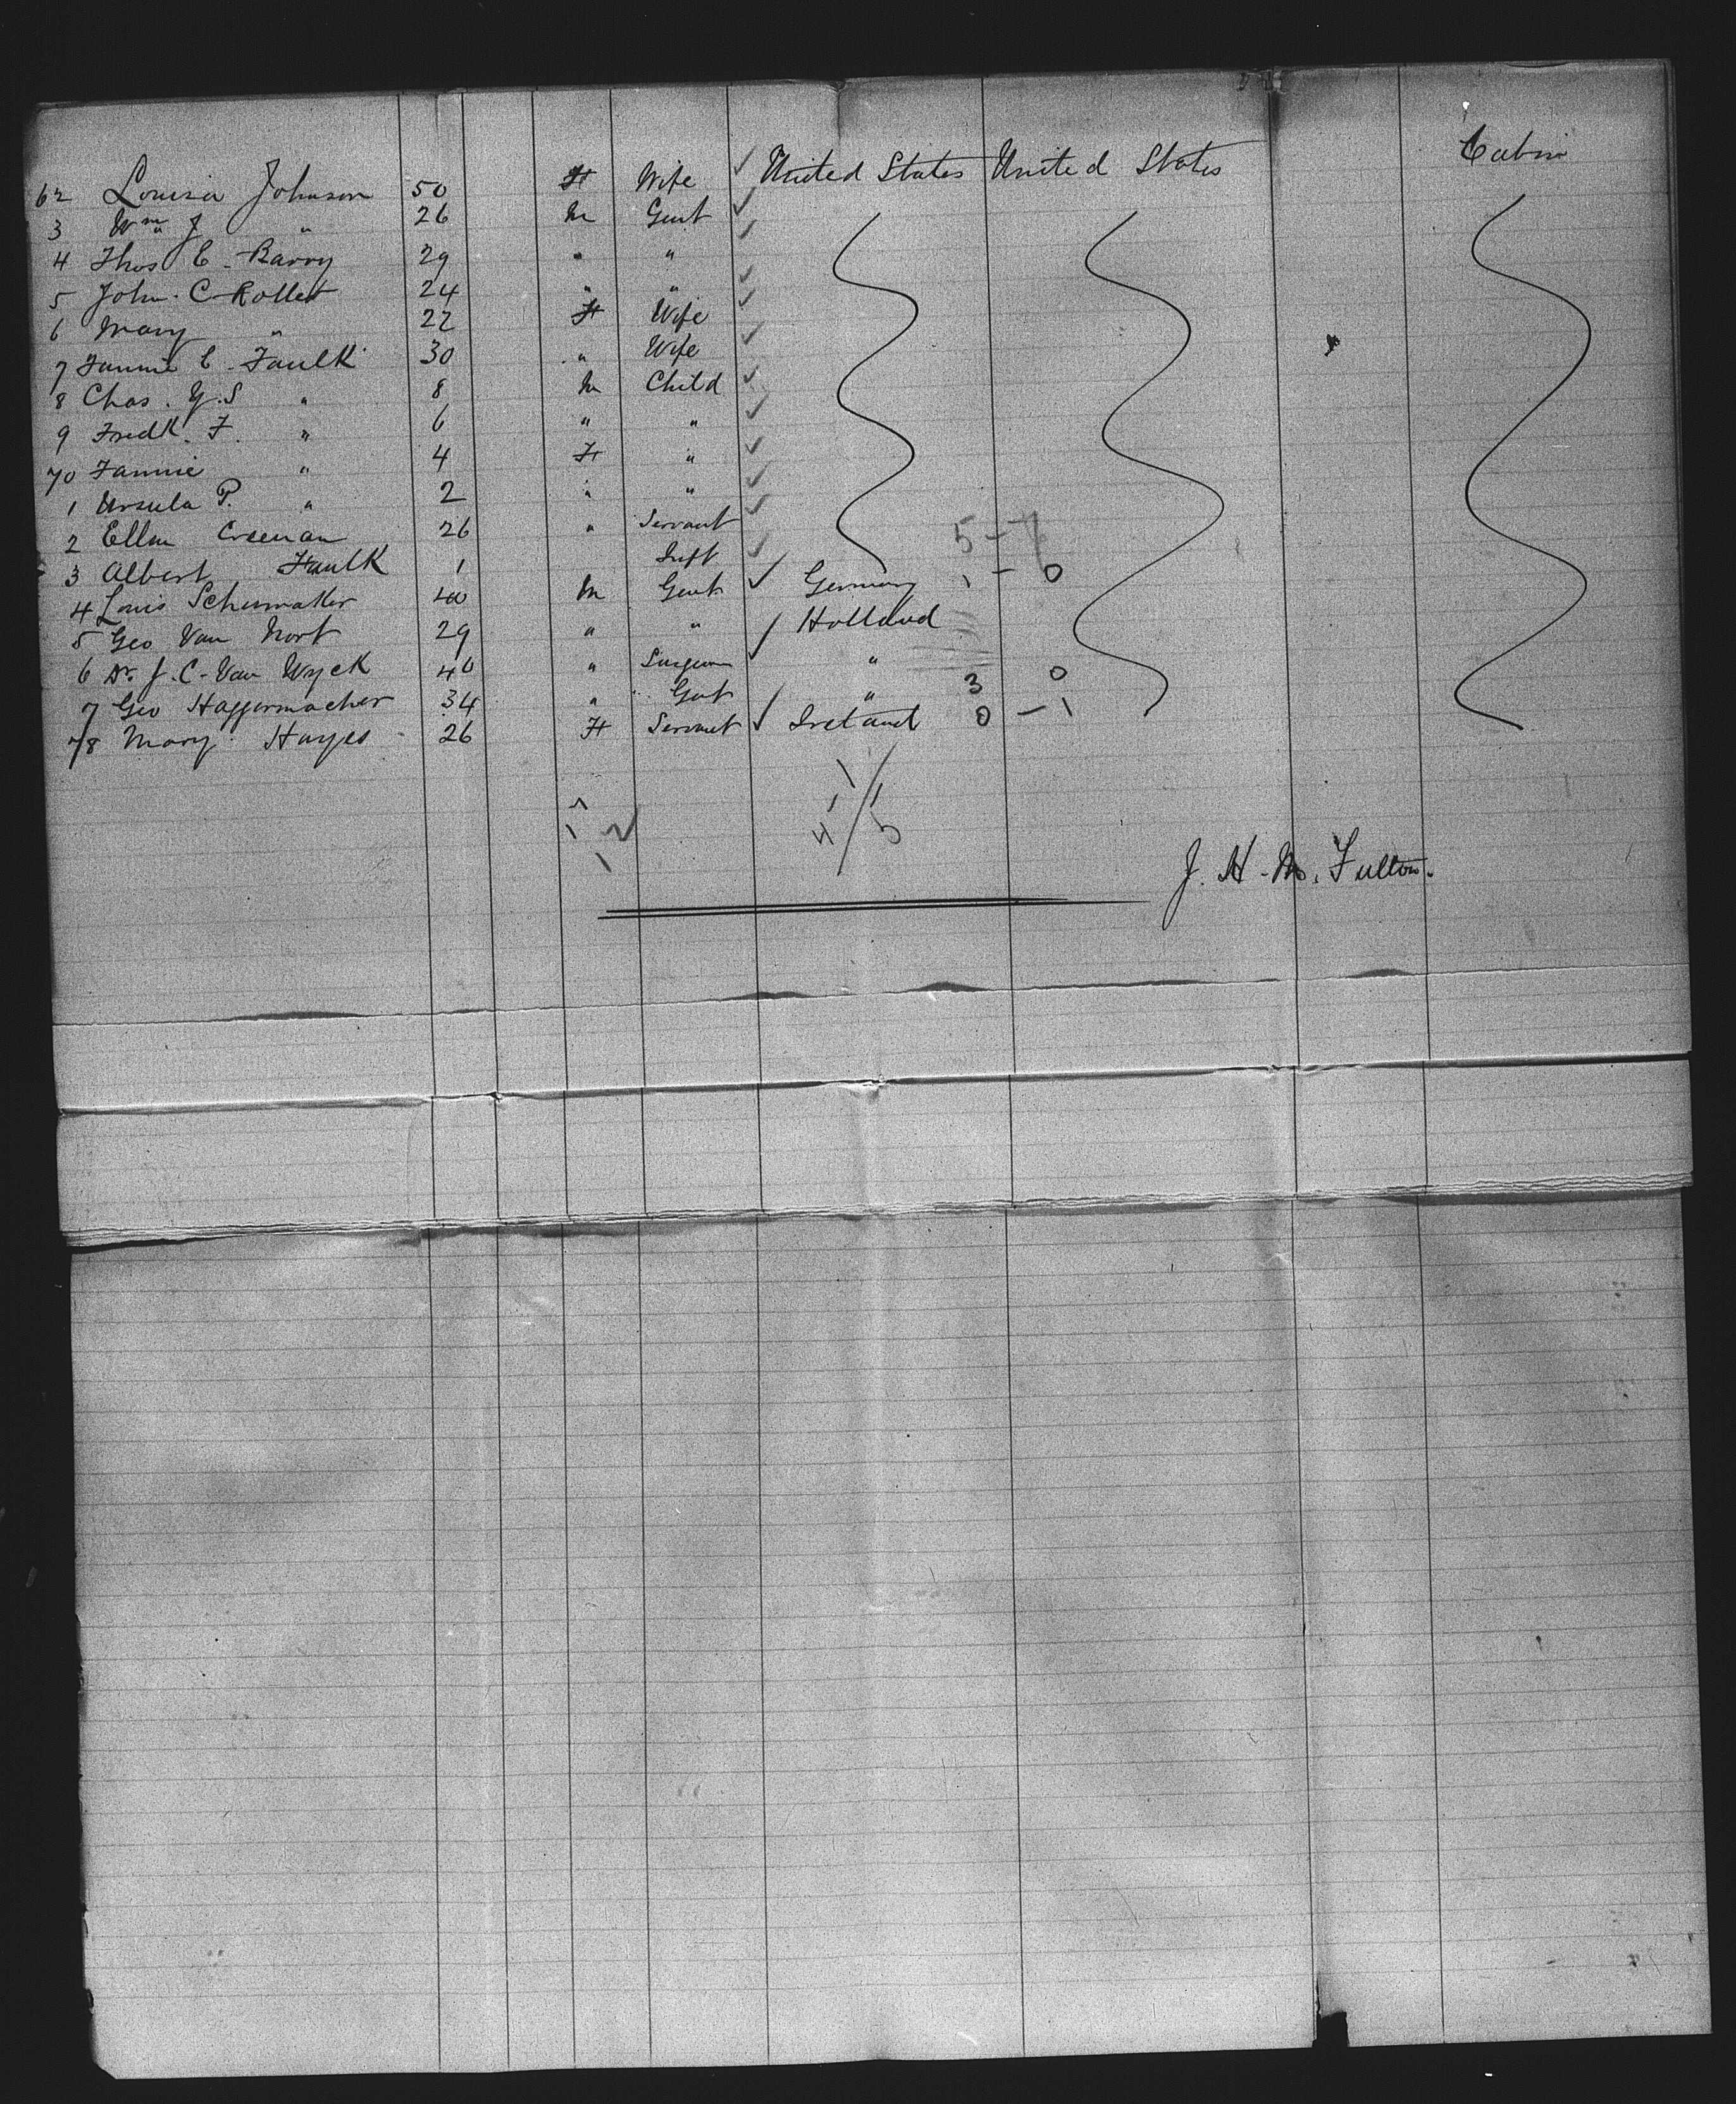 62 Louisa Johnson 50 F Wife ✓ United States United States Cabin
3 Wm J " 26 M Gent ✓
4 Thos C. Barry 29 " " ✓
5 John. C. Rollet 24 " " ✓
6 Mary " 22 F Wife ✓
7 Fannie C. Faulk 30 " Wife ✓
8 Chas. G. S " 8 M Child ✓
9 Fredk. F. " 6 " " ✓
70 Fannie " 4 F " ✓
1 Ursula P. " 2 " " ✓
2 Ellen Creenan 26 " Servant ✓ 5-7
3 Albert Faulk 1 Inft ✓
4 Louis Schumaker 40 M Gent ✓ Germany 1 - 0
5 Geo Van Nort 29 " " ✓ Holland
6 Dr. J. C. Van Wyck 40 " Surgeon "
7 Geo Haggermacher 34 " Gent " 3 0
78 Mary Hayes 26 F Servant ✓ Ireland 0 - 1
J. H. M. Fulton.